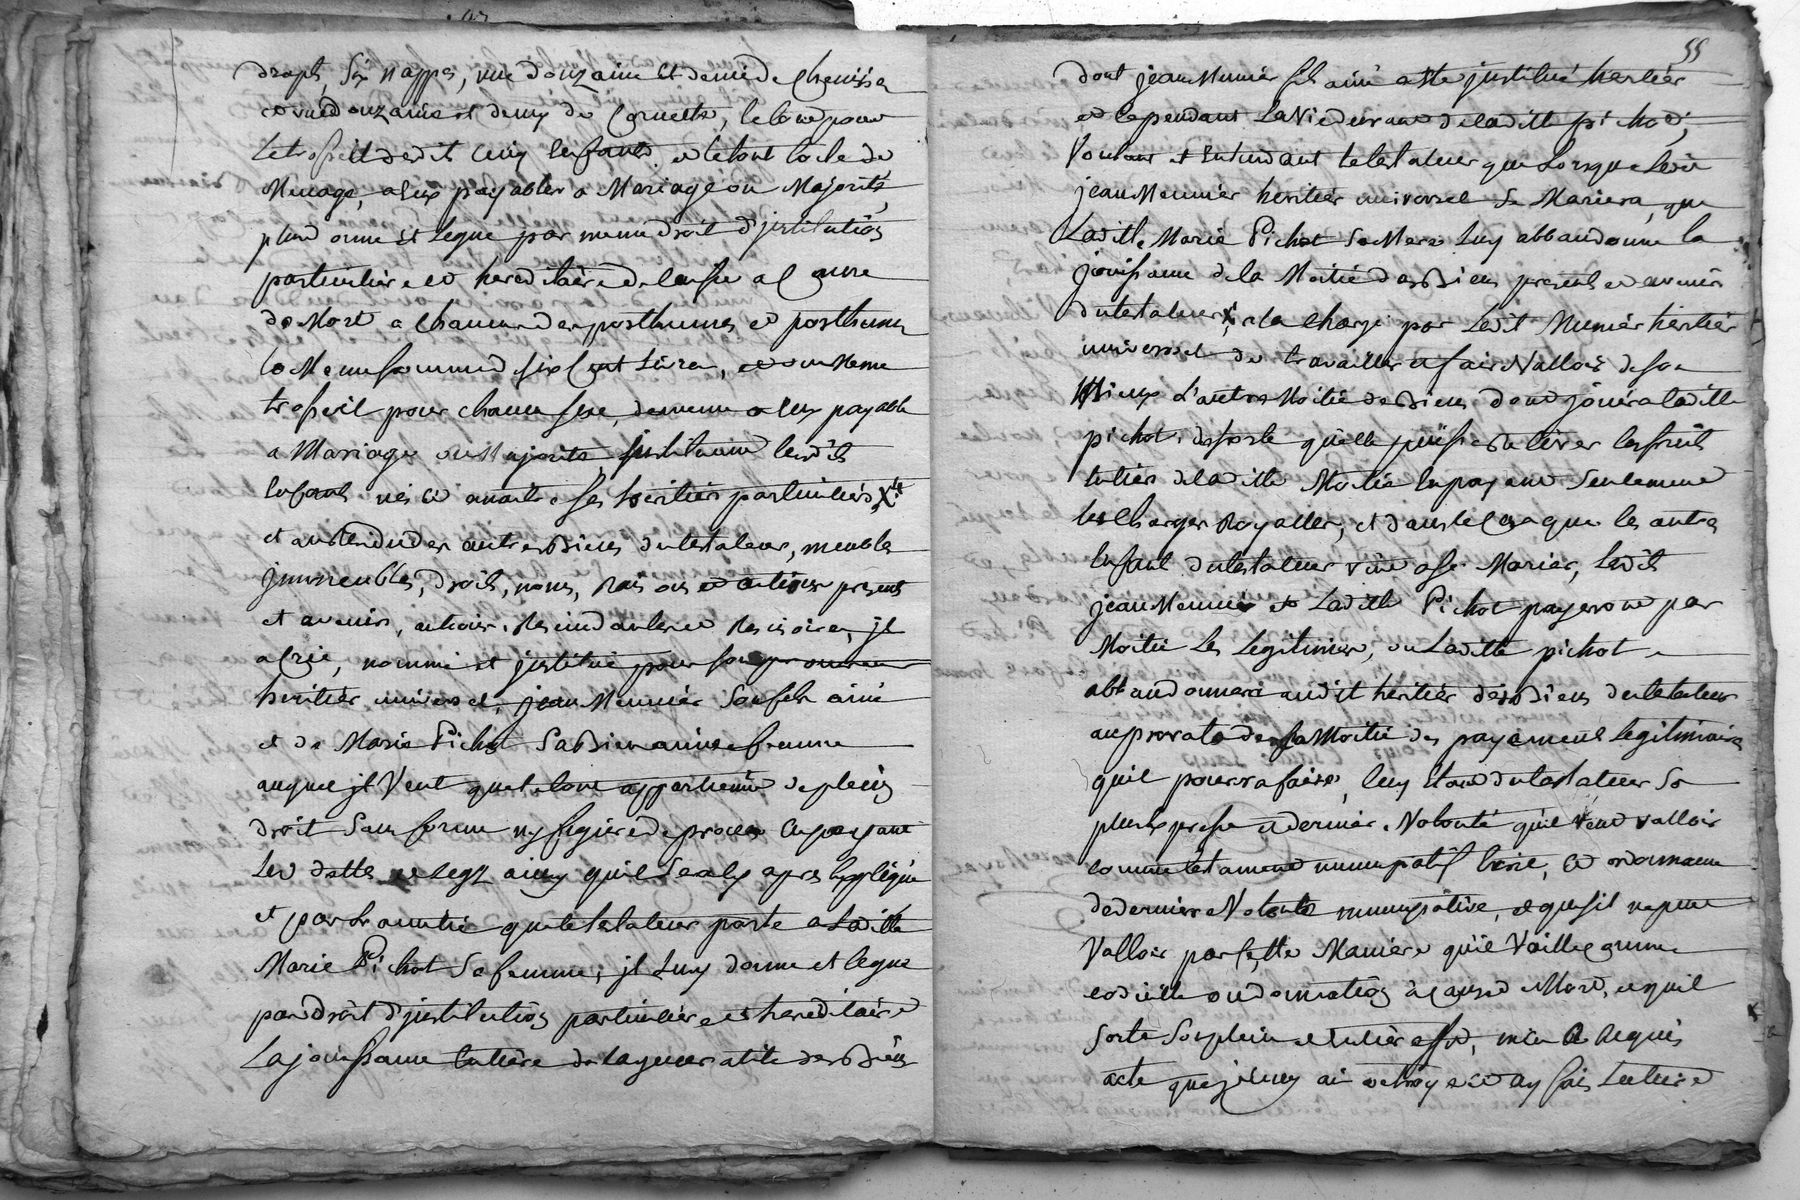 draps, six nappes, une douzaine et demie de chemises
et une douzaine et demy de Cornette, le tout pour
le trossell desdits cinq enfants, et le tout toile de
Menage, a eux payables a Mariage ou Majorité,
plus donne et legue par meme droit d'jnstitution
particuliere et hereditaire de la susd a Cause
de Mort a chacun des posthumes et posthumes
la Meme somme de six Cent Livres, et un Meme
trosseil pour chacun sexe, de meme a eux payable
a Mariage ou Majorité, jnstituant lesdits
Enfants nés et a naitre ses heritiers particuliers, X
et au residu des autres Biens du testateur, meubles
jmmeubles, droits, noms, Raisons et actions presents
et avenirs, actions Rescindantes et Rescisoires, jl
a Crée, nommé et jnstitué pour son
heritier universel, jean Meunier Son fils ainé
et de Marie Pichot Sa Bien aimée femme
auquel jl Veut que le tout appartienne de plein
droit Sans forme ny figure de procés En payant
Les dettes et legz ainsy quil Sera cy apres Expliqué
et par L'amitié que le testateur porte a Ladite
Marie Pichot Sa femme, jl Luy donne et legue
par droit d'jnstitution particuliere et hereditaire
La jouissance Entiere de la generalité de ses Biens
55
dont jean Meunier fils ainé a eté jnstitué heritier
et Cependant La Vie durant de ladite pichot,
Voulant et Entendant le testateur que Lorsque Ledit
jean Meunier heritier universel Se Mariera, que
Ladite Marie Pichot Sa Mere Luy abbandonne la
jouissance de la Moitié des Biens presents et avenirs
du testateur X, a la Charge par Ledit Munier heritier
universel de travailler et faire Valloir de son
Mieux L'autre Moitié des Biens dont jouira ladite
pichot, de sorte qu'elle puisse Retirer les fruits
Entiers de ladite Moitié En payant Seulement
les Charges Royalles, et dans le Cas que les autres
Enfants du testateur vint a se Marier, Ledit
jean Meunier et Ladite Pichot payeront par
Moitié Les Legitimes, ou Ladite pichot
abbandonnera audit heritier des Biens du testateur
au prorata de sa Moitié des payements legitimaires
quil pourra faire, Cecy Etant du testateur Sa
plus Expresse et derniere Volonté qu'il veut valloir
comme testament nuncupatif Ecrit, et ordonnance
de derniere Volonté nuncupative, et quesil ne peut
Valloir par Cette Maniere qu'il Vaille comme
codicille ou donation à cause de Mort, et quil
sorte Son plein et Entier effet, m'en a Requis
acte que je luy ai octroyé et ay fait Lecture